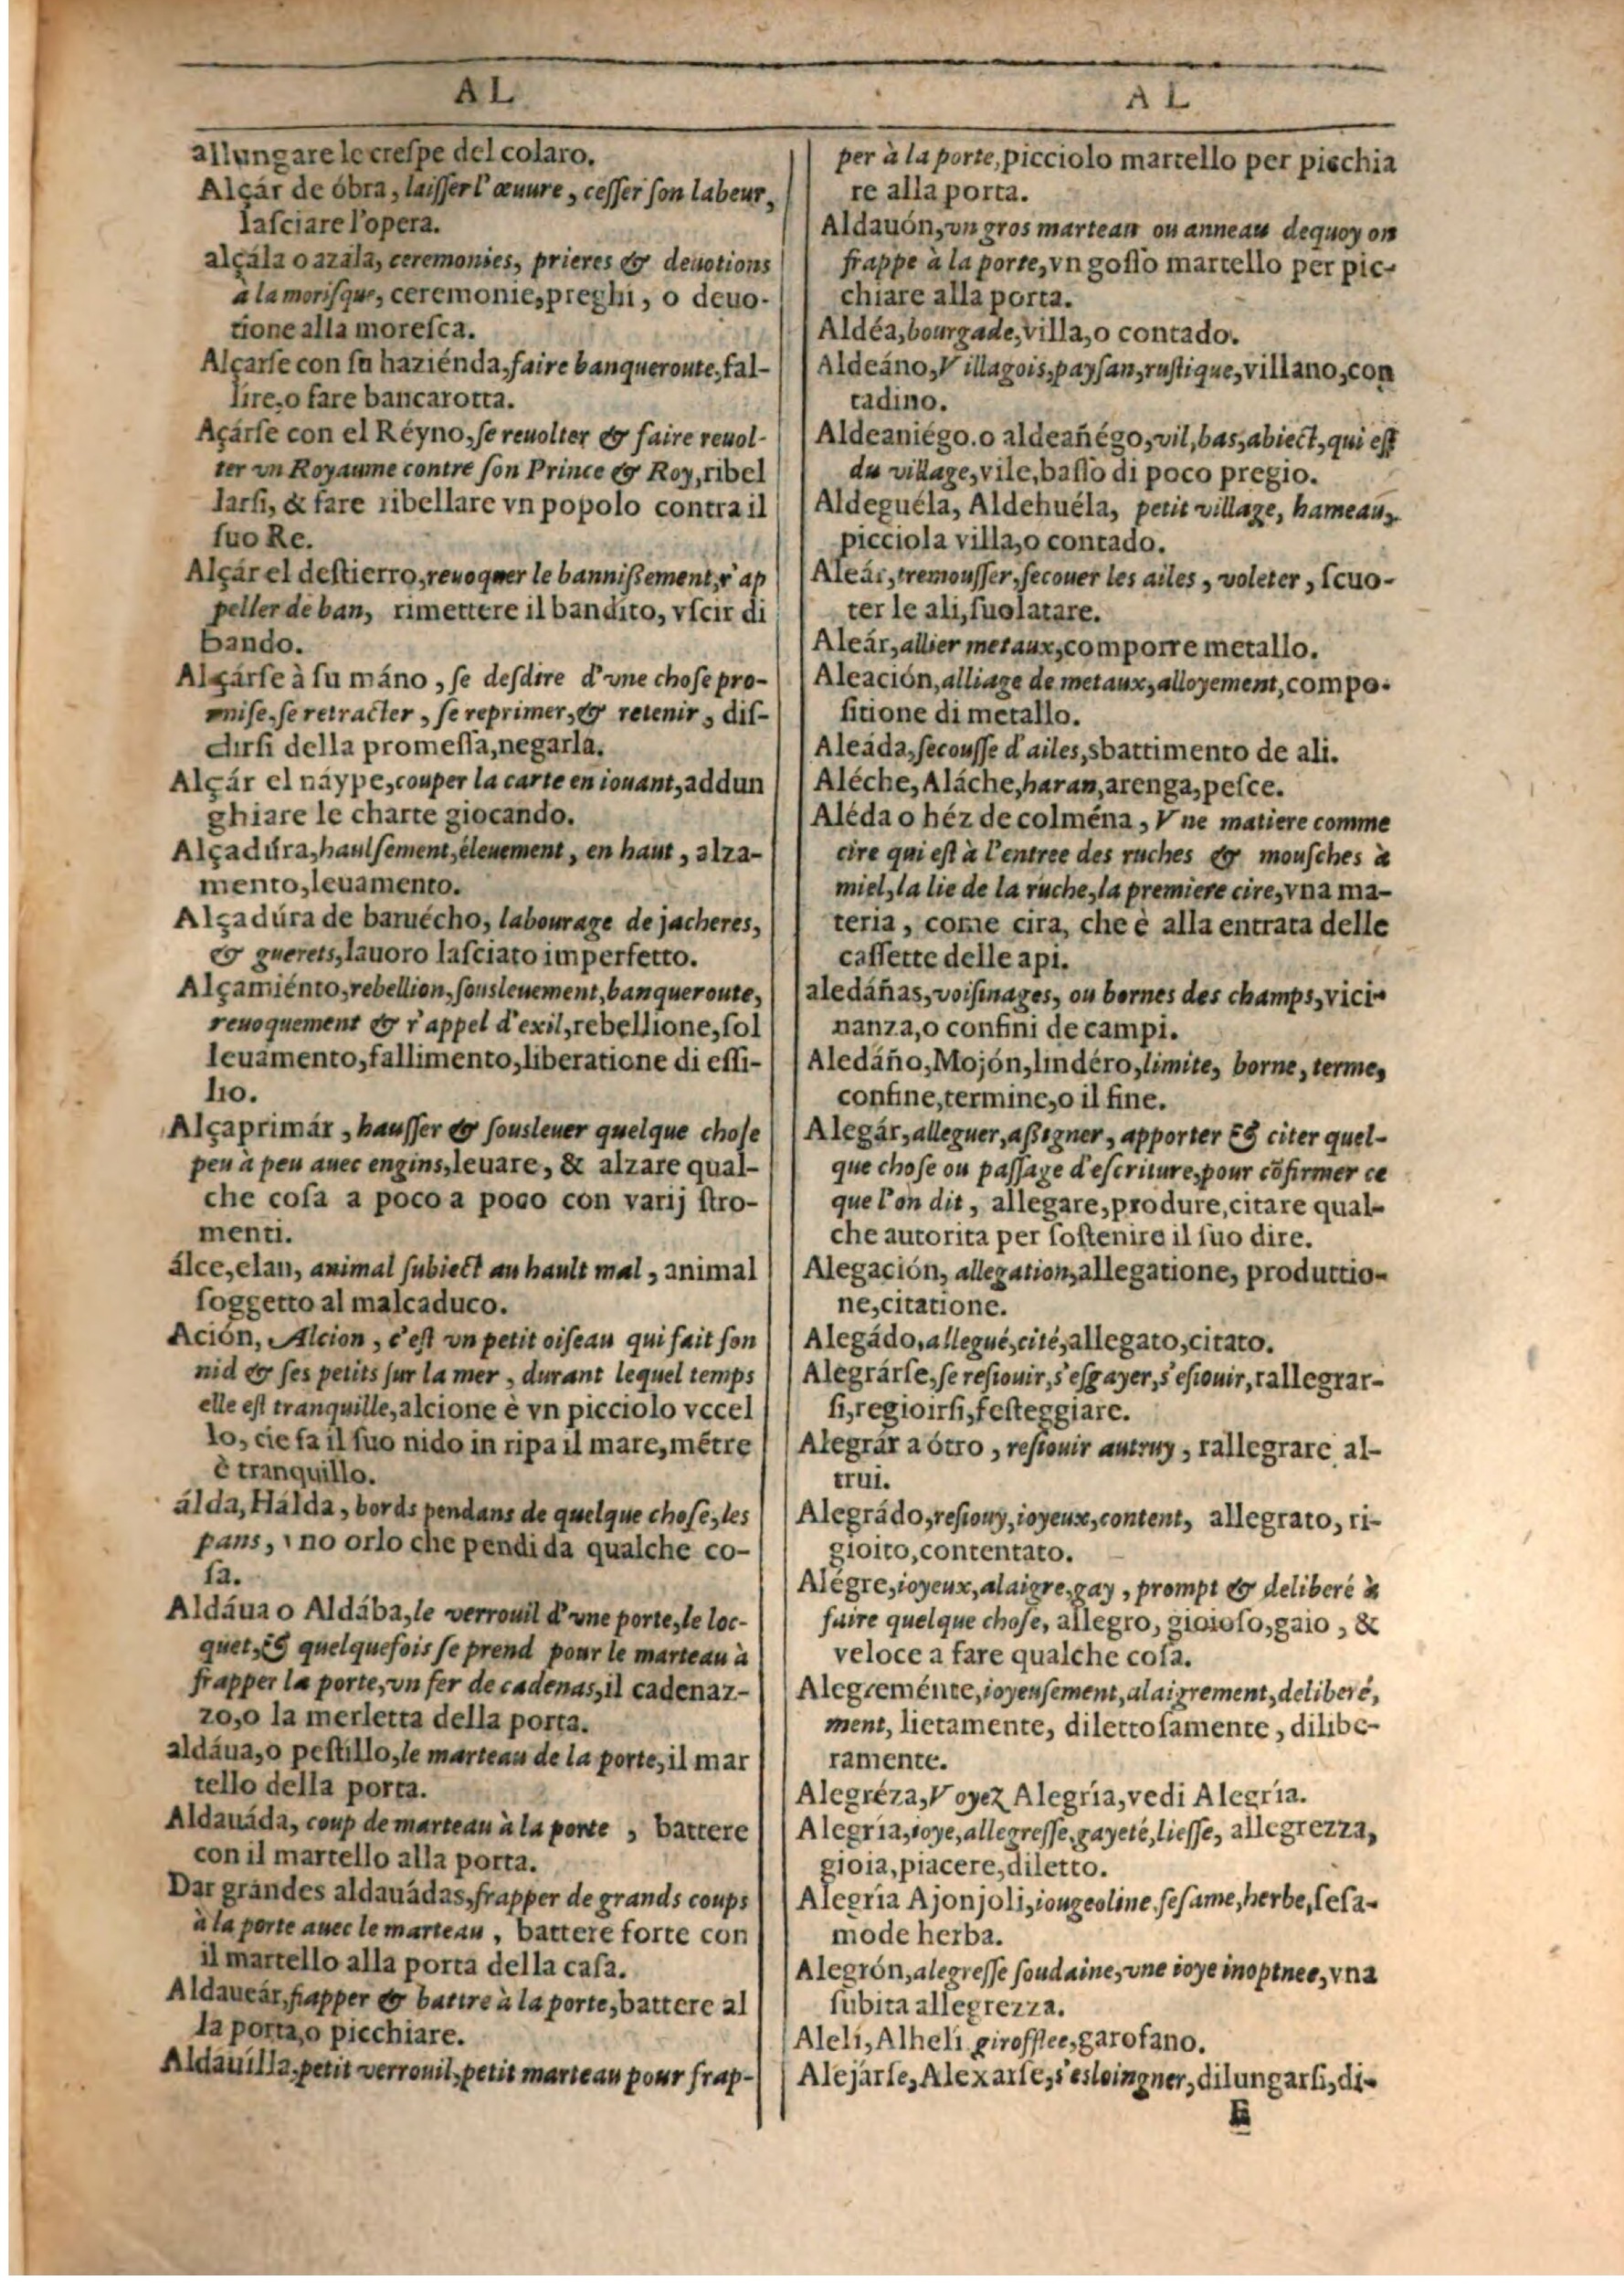 AL
allungare le crespe del colaro.
Alçár de óbra, laiſſer l'œuure, ceſſer ſon labeur,
laſciare l'opera.
alçála o azála, ceremonies, prieres & deuotions
à la moriſque, ceremonie, preghi, o deuo-
tione alla moreſca.
Alçarſe con ſu haziénda, faire banqueroute, fal-
lire, o fare bancarotta.
Açárſe con el Réyno, ſe reuolter & faire reuol-
ter vn Royaume contre ſon Prince & Roy, ribel
larſi, & fare ribellare vn popolo contra il
ſuo Re.
Alçár el deſtierro, reuoquer le banniſſement, r'ap
peller de ban, rimettere il bandito, vſcir di
bando.
Alçárſe à ſu máno, ſe deſdire d'vne choſe pro-
miſe, ſe retracter, ſe reprimer, & retenir, diſ-
dirſi della promeſſa, negarla.
Alçár el náype, couper la carte en iouant, addun
ghiare le charte giocando.
Alçadúra, haulſement, éleuement, en haut, alza-
mento, leuamento.
Alçadúra de baruécho, labourage de jacheres,
& guerets, lauoro laſciato imperfetto.
Alçamiénto, rebellion, ſousleuement, banqueroute,
reuoquement & r'appel d'exil, rebellione, ſol
leuamento, fallimento, liberatione di eſſi-
lio.
Alçaprimár, hauſſer & ſousleuer quelque choſe
peu à peu auec engins, leuare, & alzare qual-
che coſa a poco a poco con varij ſtro-
menti.
álce, elan, animal ſubiect au hault mal, animal
ſoggetto al malcaduco.
Ación, Alcion, c'eſt vn petit oiſeau qui fait ſon
nid & ſes petits ſur la mer, durant lequel temps
elle eſt tranquille, alcione è vn picciolo vccel
lo, cie fa il ſuo nido in ripa il mare, mẽtre
è tranquillo.
álda, Hálda, bords pendans de quelque choſe, les
pans, vno orlo che pendi da qualche co-
ſa.
Aldáua o Aldába, le verrouil d'vne porte, le loc-
quet, & quelquefois ſe prend pour le marteau à
frapper la porte, vn fer de cadenas, il cadenaz-
zo, o la merletta della porta.
aldáua, o peſtillo, le marteau de la porte, il mar
tello della porta.
Aldauáda, coup de marteau à la porte, battere
con il martello alla porta.
Dar grándes aldauádas, frapper de grands coups
à la porte auec le marteau, battere forte con
il martello alla porta della caſa.
Aldaueár, frapper & battre à la porte, battere al
la porta, o picchiare.
Aldauilla, petit verrouil, petit marteau pour frap-
AL
per à la porte, picciolo martello per picchia
re alla porta.
Aldauón, vn gros marteau ou anneau dequoy on
frappe à la porte, vn goſſo martello per pic-
chiare alla porta.
Aldéa, bourgade, villa, o contado.
Aldeáno, Villagois, payſan, ruſtique, villano, con
tadino.
Aldeaniégo. o aldeañégo, vil, bas, abiect, qui eſt
du village, vile, baſſo di poco pregio.
Aldeguéla, Aldehuéla, petit village, hameau,
picciola villa, o contado.
Aleár, tremouſſer, ſecouer les ailes, voleter, ſcuo-
ter le ali, ſuolatare.
Aleár, allier metaux, comporre metallo.
Aleación, alliage de metaux, alloyement, compo-
ſitione di metallo.
Aleáda, ſecouſſe d'ailes, sbattimento de ali.
Aléche, Aláche, haran, arenga, peſce.
Aléda o héz de colména, Vne matiere comme
cire qui eſt à l'entree des ruches & mouſches à
miel, la lie de la ruche, la premiere cire, vna ma-
teria, come cira, che è alla entrata delle
caſſette delle api.
aledáñas, voiſinages, ou bornes des champs, vici-
nanza, o confini de campi.
Aledáño, Mojón, lindéro, limite, borne, terme,
confine, termine, o il fine.
Alegár, alleguer, aſsigner, apporter & citer quel-
que choſe ou paſſage d'eſcriture, pour cõfirmer ce
que l'on dit, allegare, produre, citare qual-
che autorita per ſoſtenire il ſuo dire.
Alegación, allegation, allegatione, produttio-
ne, citatione.
Alegádo, allegué, cité, allegato, citato.
Alegrárſe, ſe reſiouir, s'eſgayer, s'eſiouir, rallegrar-
ſi, regioirſi, feſteggiare.
Alegrár a ótro, reſiouir autruy, rallegrare al-
trui.
Alegrádo, reſiouy, ioyeux, content, allegrato, ri-
gioito, contentato.
Alégre, ioyeux, alaigre, gay, prompt & deliberé à
faire quelque choſe, allegro, gioioſo, gaio, &
veloce a fare qualche coſa.
Alegreménte, ioyeuſement, alaigrement, deliberé,
ment, lietamente, dilettoſamente, dilibe-
ramente.
Alegréza, Voyez Alegría, vedi Alegría.
Alegría, ioye, allegreſſe, gayeté, lieſſe, allegrezza,
gioia, piacere, diletto.
Alegría Ajonjoli, iougeoline, ſeſame, herbe, ſeſa-
mode herba.
Alegrón, alegreſſe ſoudaine, vne ioye inopinee, vna
ſubita allegrezza.
Alelí, Alhelí girofflee, garofano.
Alejárſe, Alexarſe, s'esloingner, dilungarſi, di-
E